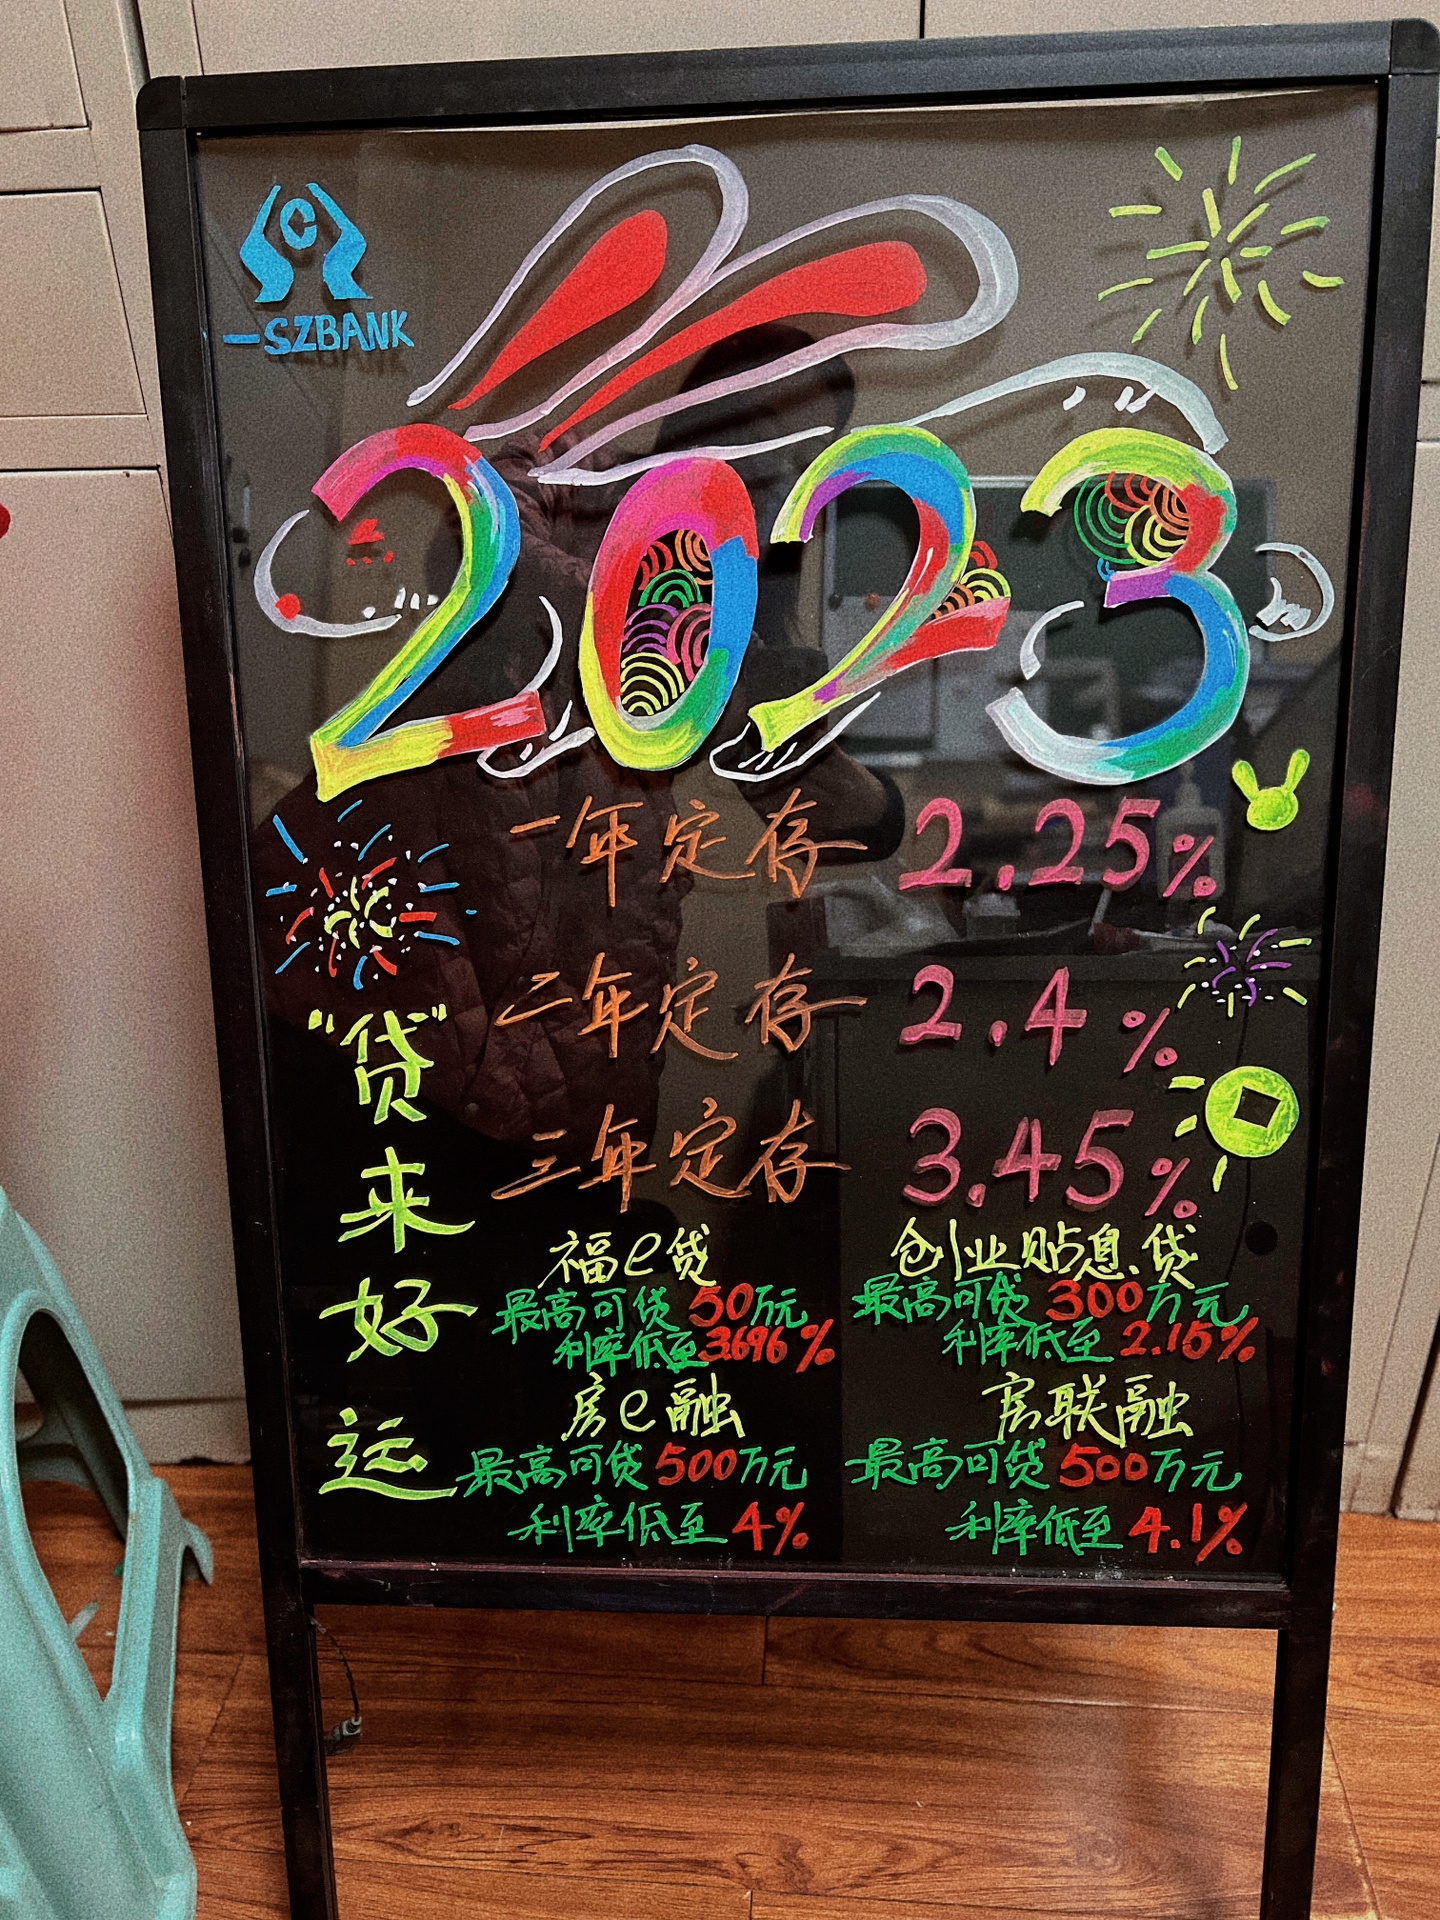 C
-SZBANK
2023
一年定存 2.25%
二年定存 2.4%
三年定存 3.45%
"贷"来好运
福e贷
最高可贷50万元
利率低至3.696%
创业贴息贷
最高可贷300万元
利率低至2.15%
房e融
最高可贷500万元
利率低至4%
房联融
最高可贷500万元
利率低至4.1%